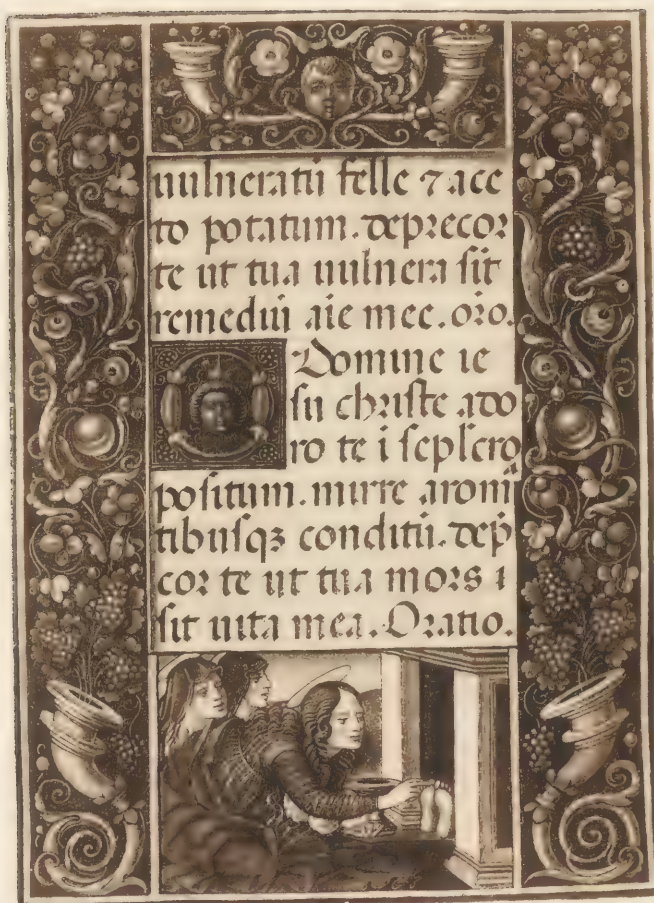 uulneratū felle ⁊ ace
to potatum. deprecor
te ut tua uulnera sit
remediū aīe mee. oŕo.
O Domine ie
su christe ado
ro te ī seplcro
positum. mirre aroma
tibusqꝫ conditū. dep̄
cor te ut tua mors
sit uita mea. Oratio.